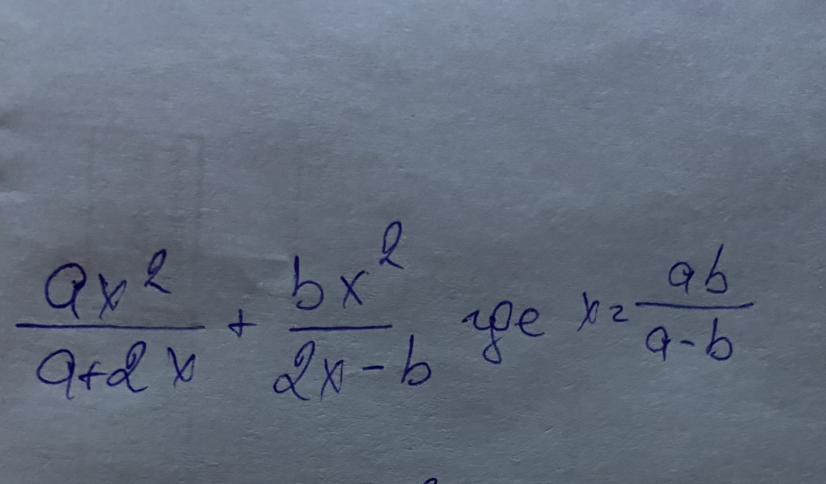 ax²/(a+2x) + bx²/(2x-b) где x=ab/(a-b)